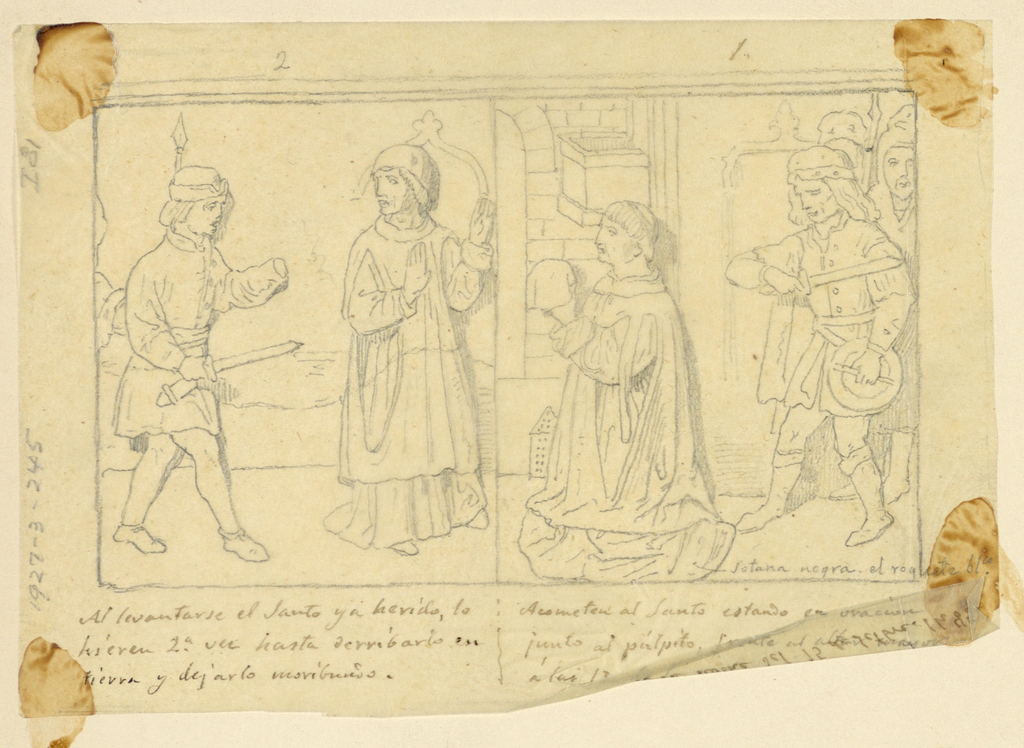 2
1.
181
1927-3-245
sotana negra. el roquete
Al levantarse el Santo ya herido, lo
hieren 2ª vez hasta derribarlo en
tierra y dejarlo moribundo.
Acometen al Santo estando en oracion
junto al púlpito, frente al
á las